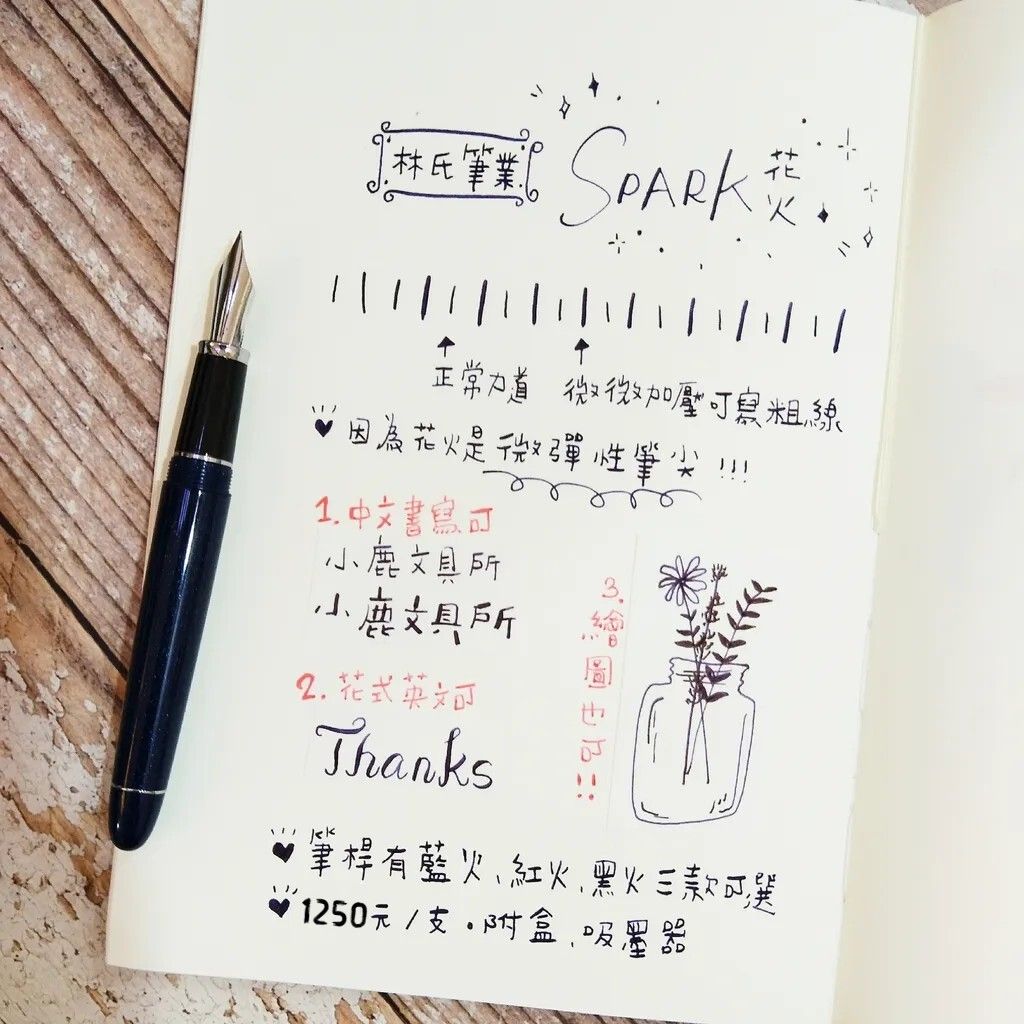 林氏筆業
SPARK花火
正常力道
微微加壓可寫粗線
因為花火是微彈性筆尖!!!
1.中文書寫可
小鹿文具所
小鹿文具所
2.花式英文可
Thanks
3.繪圖也可!!
筆桿有藍火、紅火、黑火三款可選
1250元/支。附盒、吸墨器